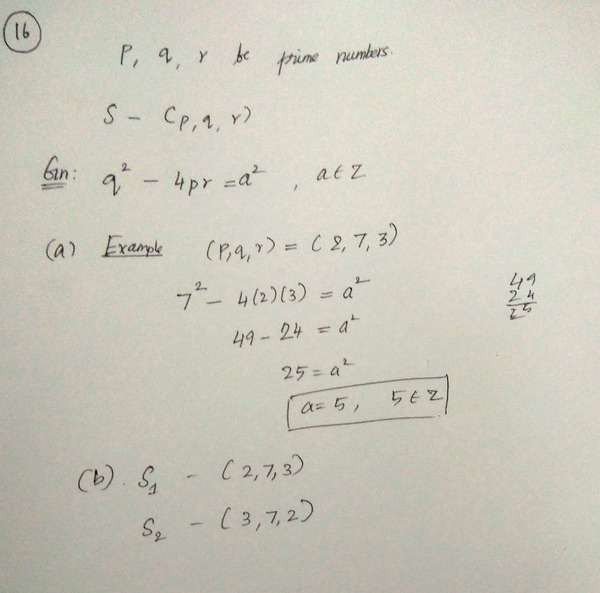 16
P, q, r be prime numbers.
S - (p, q, r)
Gn: q² - 4pr = a², a ∈ Z
(a) Example (P, q, r) = (2, 7, 3)
7² - 4(2)(3) = a²
49 - 24 = a²
25 = a²
a = 5, 5 ∈ Z
49
24
25
(b). S₁ - (2, 7, 3)
S₂ - (3, 7, 2)